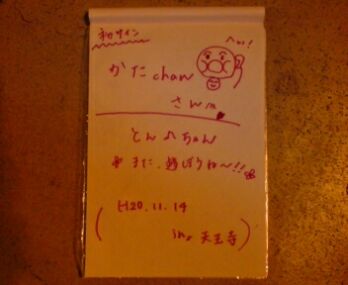 初サイン
へい!
かたchan
さんへ
とん♪ちゃん
また、遊ぼうね〜!!
H20.11.14
in. 天王寺